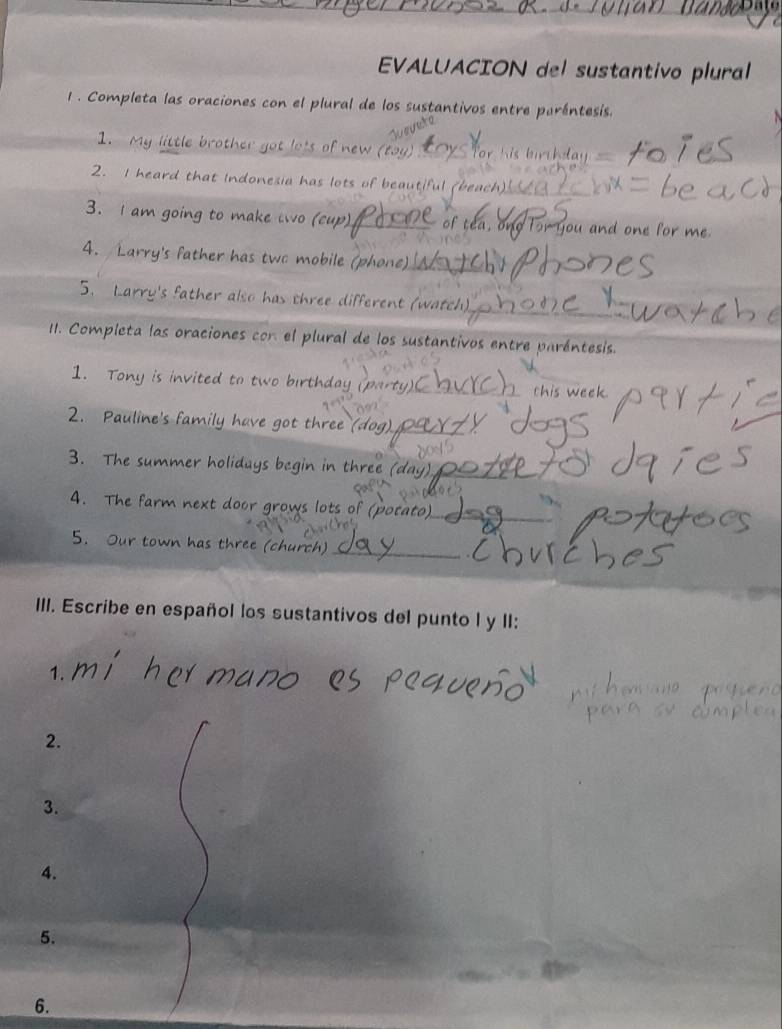 EVALUACION del sustantivo plural
I. Completa las oraciones con el plural de los sustantivos entre paréntesis.
juguete
1. My little brother got lots of new (toy) toys for his birthday = foies
2. I heard that Indonesia has lots of beautiful (beach) = beach
cups
3. I am going to make two (cup) phone of tea, one for you and one for me.
cups
4. Larry's father has two mobile (phone) watch phones
5. Larry's father also has three different (watch) phone watche
II. Completa las oraciones con el plural de los sustantivos entre paréntesis.
parties
1. Tony is invited to two birthday (party) church this week partie
perro dogs
2. Pauline's family have got three (dog) party dogs
days
3. The summer holidays begin in three (day) daies
papa potatoes
4. The farm next door grows lots of (potato) dog potatoes
churches
5. Our town has three (church) day churches
III. Escribe en español los sustantivos del punto I y II:
1. mi hermano es pequeño mi hermano pequeño
para su
2.
3.
4.
5.
6.